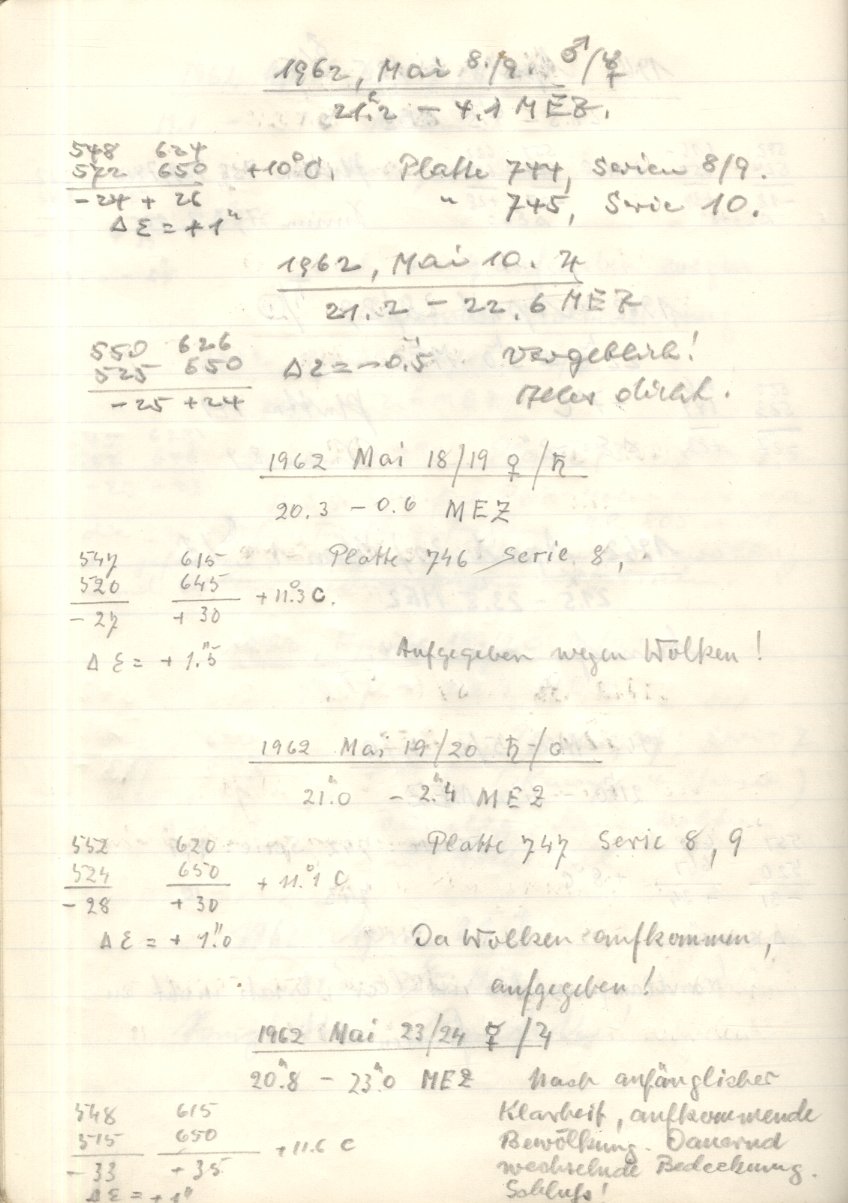 1962, Mai 8./9. ♂/☿
21ʰ.2 – 4.1 MEZ.
548 624
572 650 +10°C. Platte 744, Serien 8/9.
-24 + 26 " 745, Serie 10.
Δ Ɛ = +1"
1962, Mai 10. ♃
21.2 – 22.6 MEZ
550 626
525 650 Δ Ɛ = -0.5" Vergeblich!
-25 +24 dicht.
1962 Mai 18/19 ♀/♄
20.3 – 0.6 MEZ
547 615 Platte 746 Serie 8,
520 645 + 11.°3 C.
- 27 + 30
Δ Ɛ = + 1."5 Aufgegeben wegen Wolken!
1962 Mai 19/20 ♄/☉
21.ʰ0 – 2.ʰ4 MEZ
552 620 Platte 747 Serie 8, 9
524 650 + 11.°1 C
- 28 + 30
Δ Ɛ = + 1."0 Da Wolken aufkommen,
aufgegeben!
1962 Mai 23/24 ☿/♃
20.ʰ8 – 23.ʰ0 MEZ Nach anfänglicher
548 615 Klarheit, aufkommende
515 650 + 11.6 C Bewölkung. Dauernd
- 33 + 35 wechselnde Bedeckung.
Δ Ɛ = + 1" Schluß!